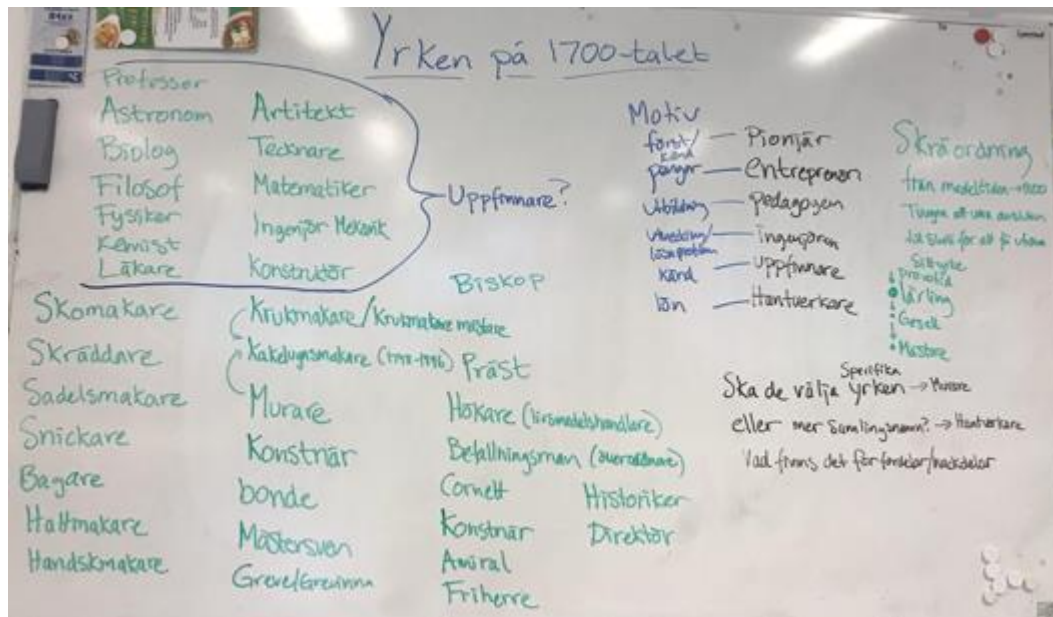 Yrken på 1700-talet
Professor
Astronom
Biolog
Filosof
Fysiker
Kemist
Läkare
Artitekt
Tecknare
Matematiker
Ingenjör Mekanik
Konstruktör
Uppfinnare?
Skomakare
Skräddare
Sadelsmakare
Snickare
Bagare
Hattmakare
Handskmakare
Krukmakare/Krukmakare mästare
Kakelugnsmakare
Murare
Konstnär
bonde
Mästersven
Greve/Grevinna
Biskop
Präst
Hökare (livsmedelshandlare)
Befallningsman
Cornett
Konstnär
Amiral
Friherre
Historiker
Direktör
Motiv
först/
känd
Pionjär
pengar
entreprenören
Utbildning
pedagogen
Utveckling/
ingenjören
känd
uppfinnare
lön
Hantverkare
Skråordning
från medeltiden
Tvungen att vara
för att få
provotid
lärling
Gesäll
Mästare
Specifika
Ska de välja yrken → Murare
eller mer samlingsnamn? → Hantverkare
Vad finns det för fördelar/nackdelar